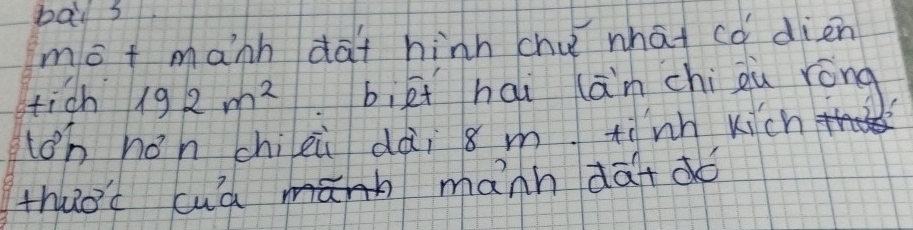 bài 3
một mảnh đất hình chữ nhật có diện
tích 192 m². biết hai lần chiều rộng
lớn hơn chiều dài 8 m. tính kích
thước của mảnh đất đó